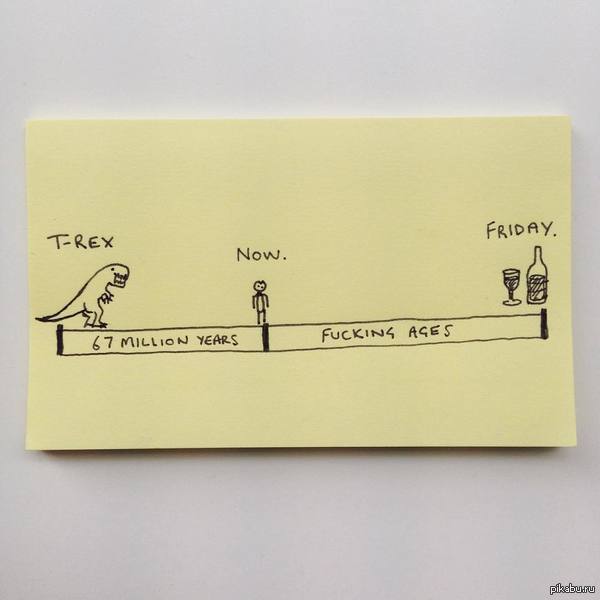 T-REX
NOW.
FRIDAY.
67 MILLION YEARS
FUCKING AGES
pikabu.ru